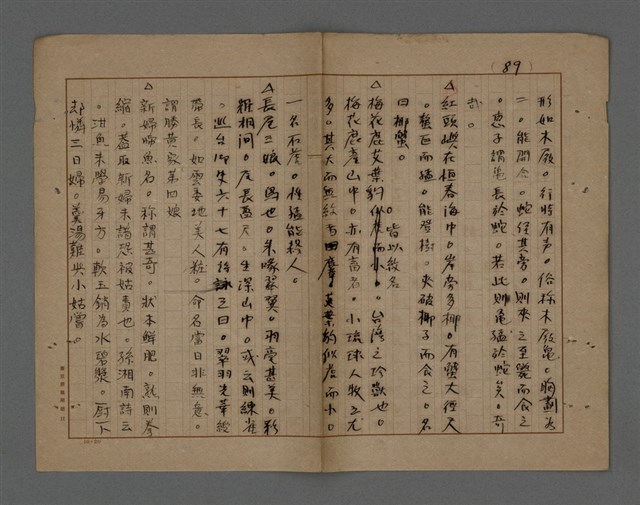 (89)
形如木屐。行時有聲。俗称木屐龜。胸劃為
二。能開合。蛇經其旁。則夾之至斃而食之
。惠子謂龜長於蛇。若此則龜猛於蛇矣。奇
哉。
△ 紅頭嶼在恒春海中。岸旁多椰。有蟹大徑尺
。螯巨而猛。能登樹。夾破椰子而食之。名
曰椰蟹。
△ 梅花鹿艾葉豹 皆以紋名 似虎而小。台湾之珍獸也。
梅花鹿產山中。亦有畜者。小琉球人牧之尤
多。其大而無紋者曰麞。艾葉豹似虎而小。
一名石虎。性猛能殺人。
△ 長尾三娘。鳥也。朱喙翠翼。羽毫甚美。彩
粧相间。尾長盈尺。生深山中。或云則練雀
。巡台御史六十七有詩詠之曰。翠羽光華綬
帶長。如雲委地美人粧。命名當日非無意。
謂勝黄家第四娘
△ 新婦啼魚名。称謂甚奇。狀本鮮肥。熟則拳
縮。蓋取新婦未諳恐被姑責也。孫湘南詩云
。泔魚未學易牙方。軟玉銷為水碧漿。厨下
却憐三日婦。羹湯難與小姑嘗。